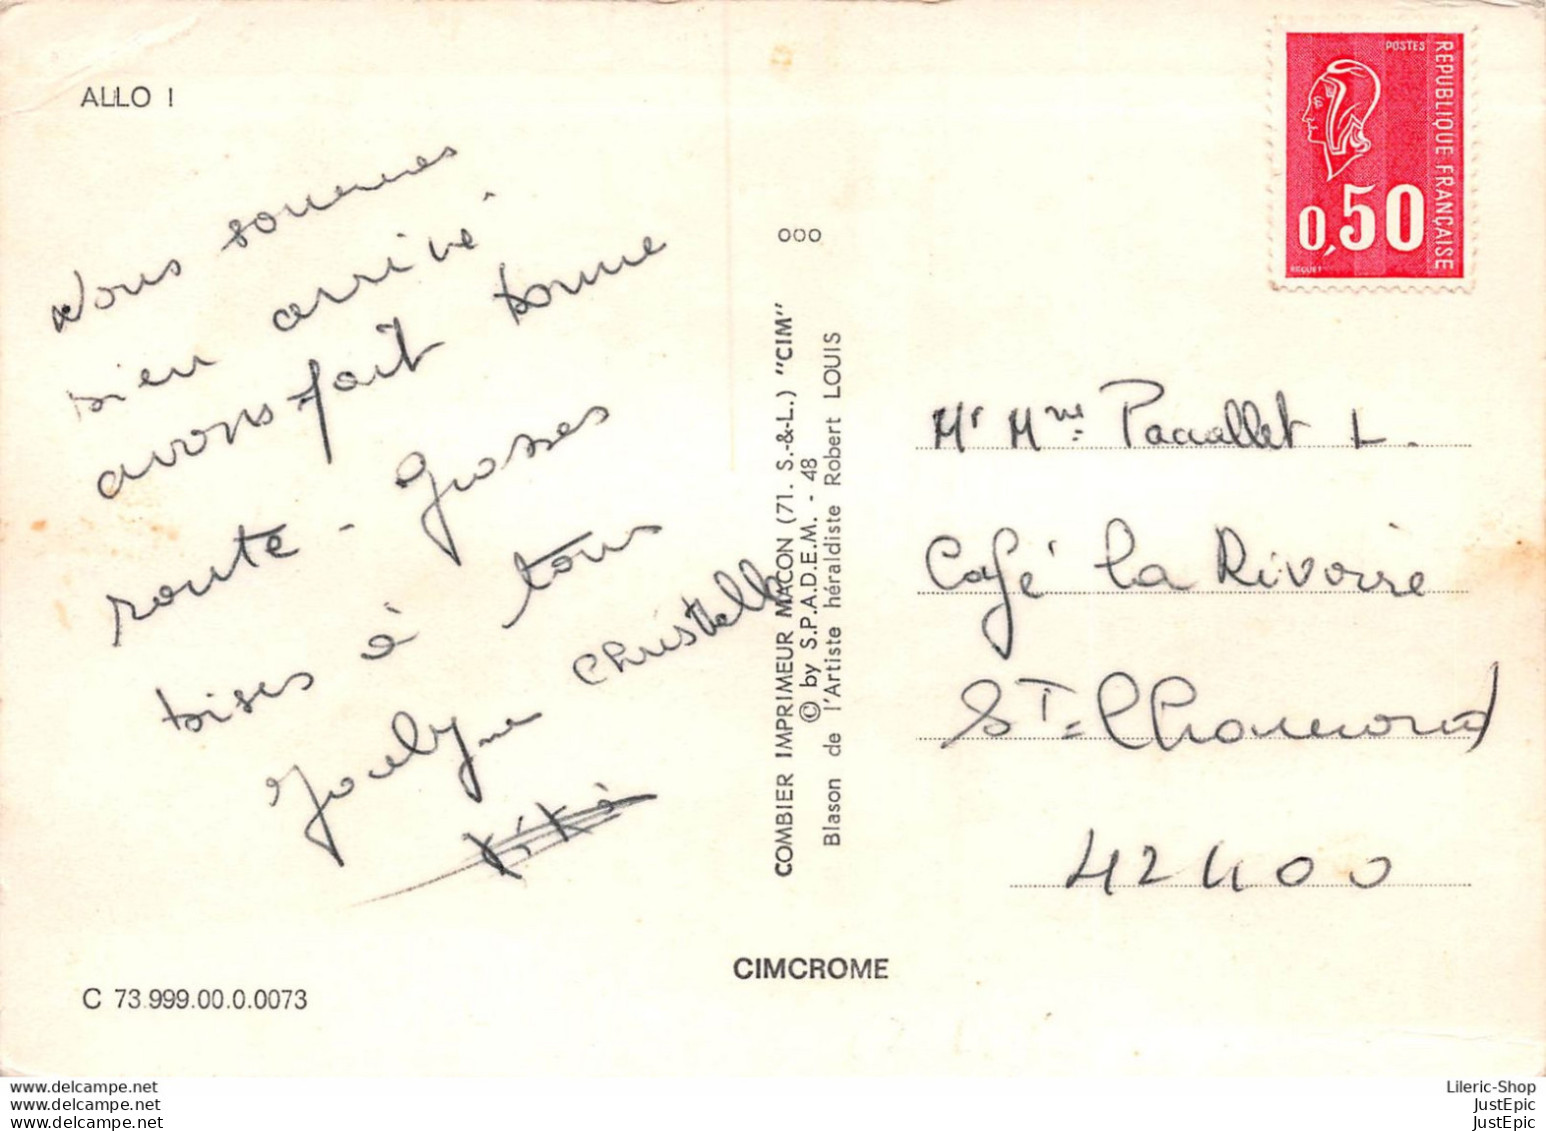 ALLO !
Nous sommes
bien arrivé
avons fait bonne
route - Grosses
bises à tous
Jocelyne Christelle
Kiki
C 73.999.00.0.0073
COMBIER IMPRIMEUR MACON (71. S.-&-L.) "CIM"
© by S.P.A.D.E.M. - 48
Blason de l'Artiste héraldiste Robert LOUIS
ooo
CIMCROME
POSTES
REPUBLIQUE FRANÇAISE
0,50
BEQUET
Mr Mme Pacallet L.
Café la Rivoire
ST=Chamond
42400
www.delcampe.net
www.delcampe.net
www.delcampe.net
Lileric-Shop
JustEpic
JustEpic